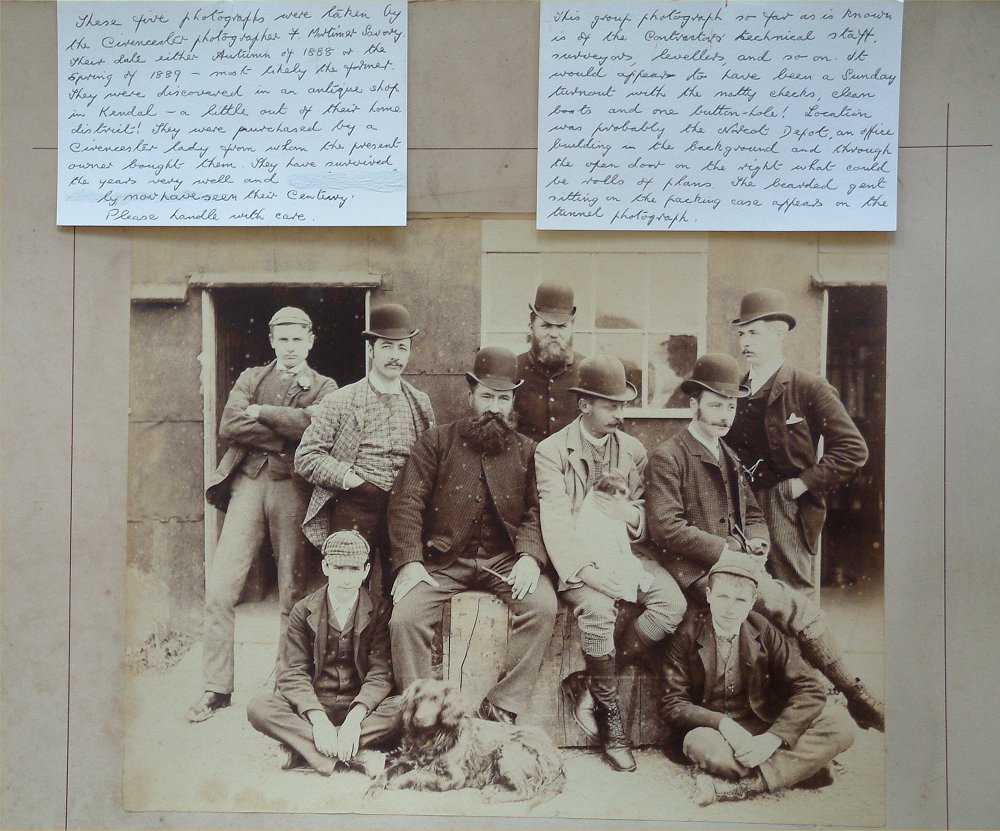 These five photographs were taken by
the Cirencester photographer F Mortimer Savory.
Their date either Autumn of 1888 or the
Spring of 1889 – most likely the former.
They were discovered in an antique shop
in Kendal – a little out of their home
district! They were purchased by a
Cirencester lady from whom the present
owner bought them. They have survived
the years very well and
by now have seen their Century.
Please handle with care.
This group photograph so far as is known
is of the Contractors technical staff,
surveyors, levellers, and so on. It
would appear to have been a Sunday
turnout with the natty checks, clean
boots and one button-hole! Location
was probably the Norcot Depot, an office
building in the background and through
the open door on the right what could
be rolls of plans. The bearded gent
sitting on the packing case appears on the
tunnel photograph.